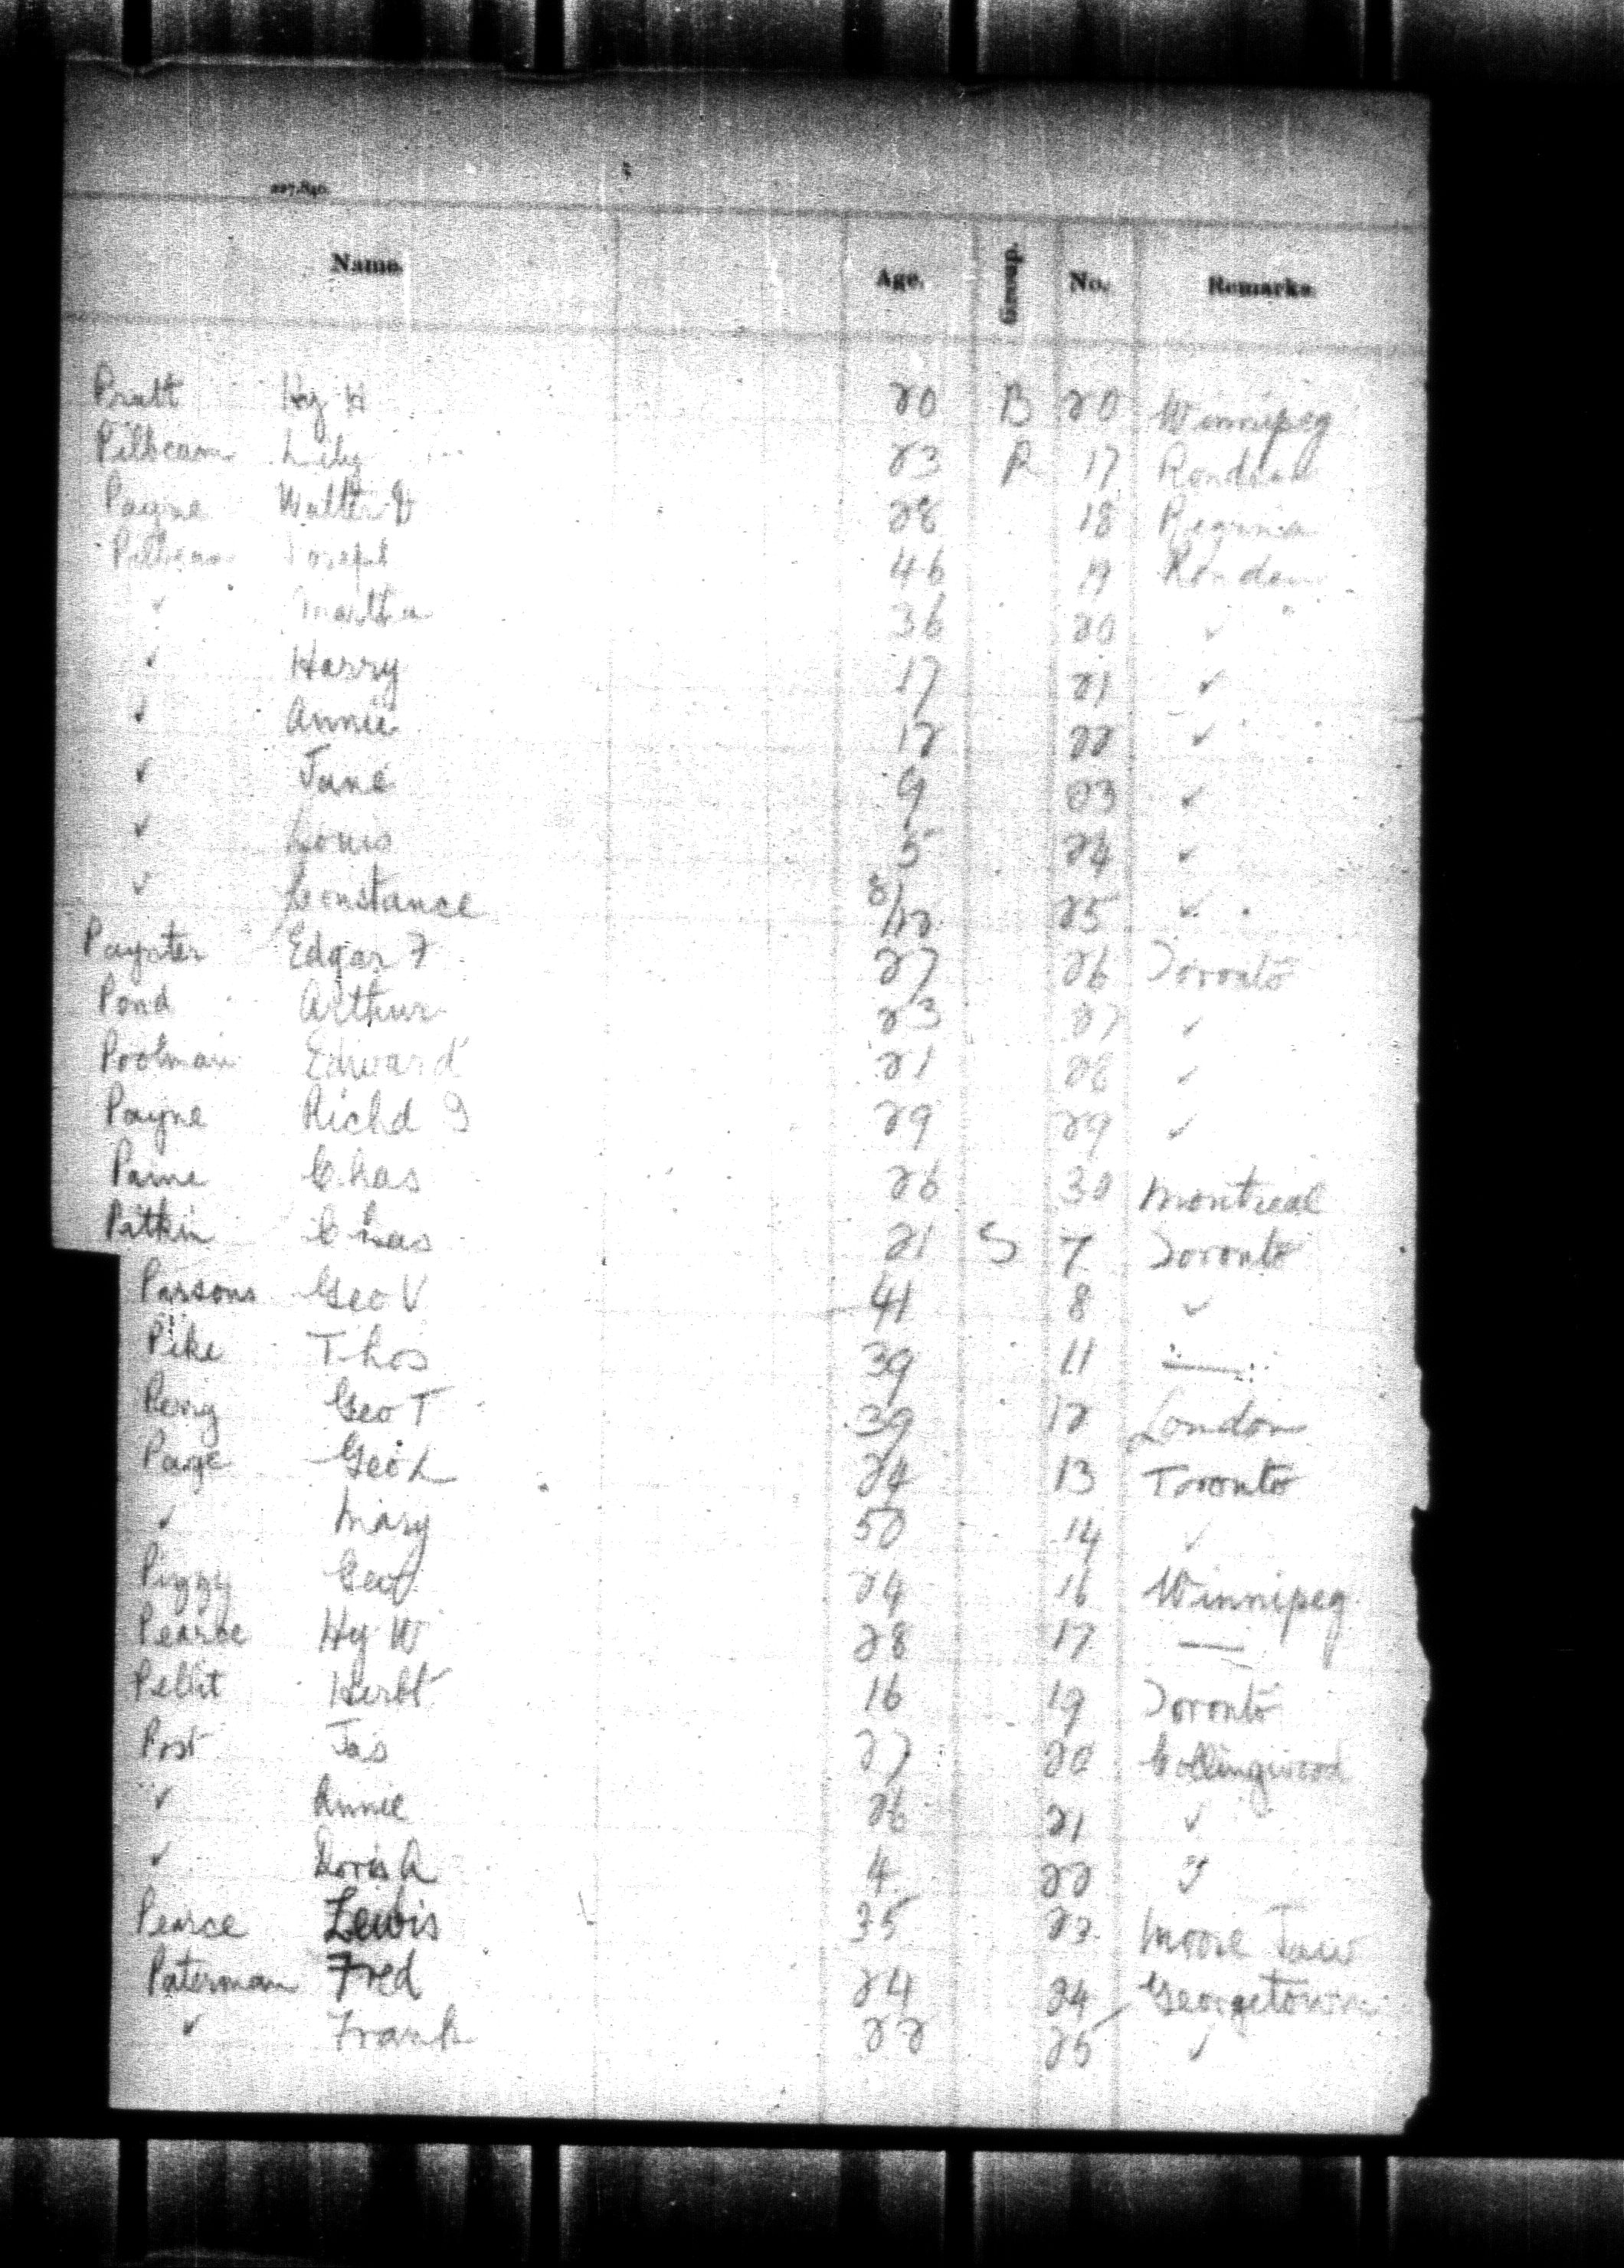 227,840.
Name. Age. Group. No. Remarks.
Pratt Hy H 20 B 20 Winnipeg
Pilbeam Lily 23 R 17 Rondeau
Payne Walter 28 18 Regina
Pilbeam Joseph 46 19 Rondeau
✓ Martha 36 20 ✓
✓ Harry 17 21 ✓
✓ Annie 12 22 ✓
✓ Jane 9 23 ✓
✓ Louis 5 24 ✓
✓ Constance 8/12 25 ✓
Paynter Edgar F 27 26 Toronto
Pond Arthur 23 27 ✓
Poolman Edward 21 28 ✓
Payne Richd 29 29 ✓
Paine Chas 26 30 Montreal
Pitkin Chas 21 S 7 Toronto
Parsons Geo V 41 8 ✓
Pike Thos 39 11 —
Perry Geo T 39 12 London
Paige Geo L 24 13 Toronto
✓ Mary 50 14 ✓
Piggy Geo 24 16 Winnipeg
Pearce Hy W 28 17 —
Pellit Herbt 16 19 Toronto
Post Jas 27 20 Collingwood
✓ Annie 26 21 ✓
✓ Doris A 4 22 ✓
Pearce Lewis 35 23 Moose Jaw
Paterman Fred 24 24 Georgetown
✓ Frank 22 25 ✓